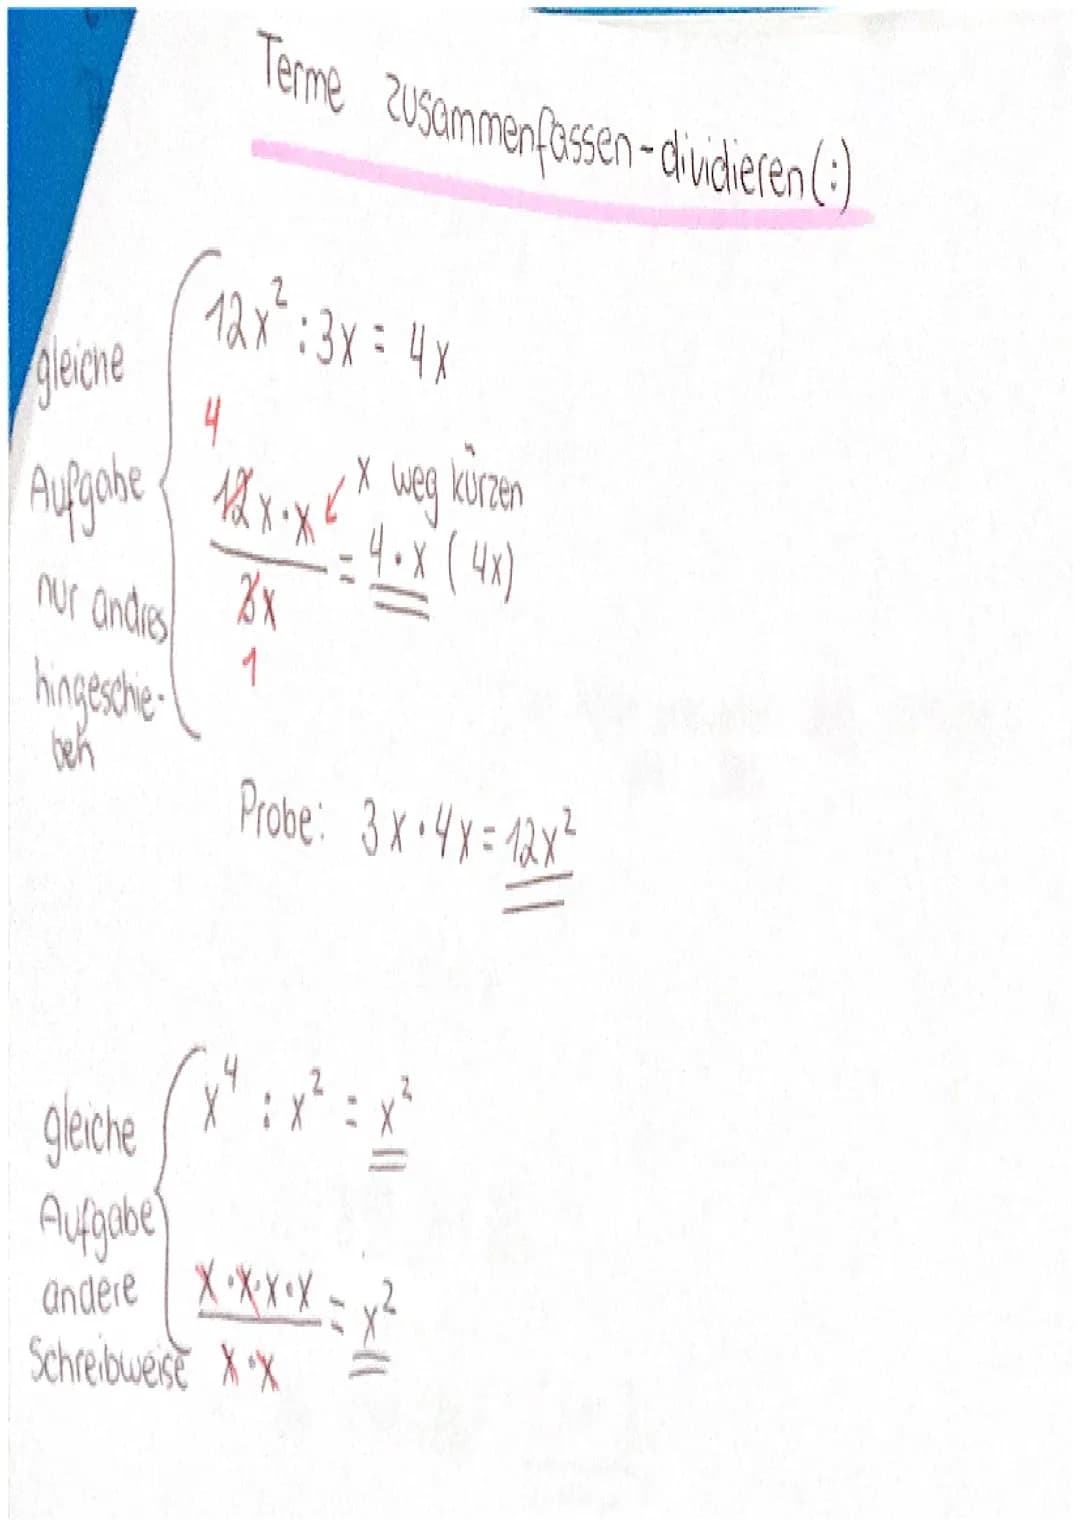 Terme zusammenfassen - dividieren (:)
gleiche
Aufgabe
nur andres
hingeschie-
ben
12x² : 3x = 4x
4
12x·x ↙ x weg kürzen
= 4·x (4x)
3x
1
Probe: 3x·4x = 12x²
gleiche
Aufgabe
andere
Schreibweise
x⁴ : x² = x²
x·x·x·x = x²
x·x